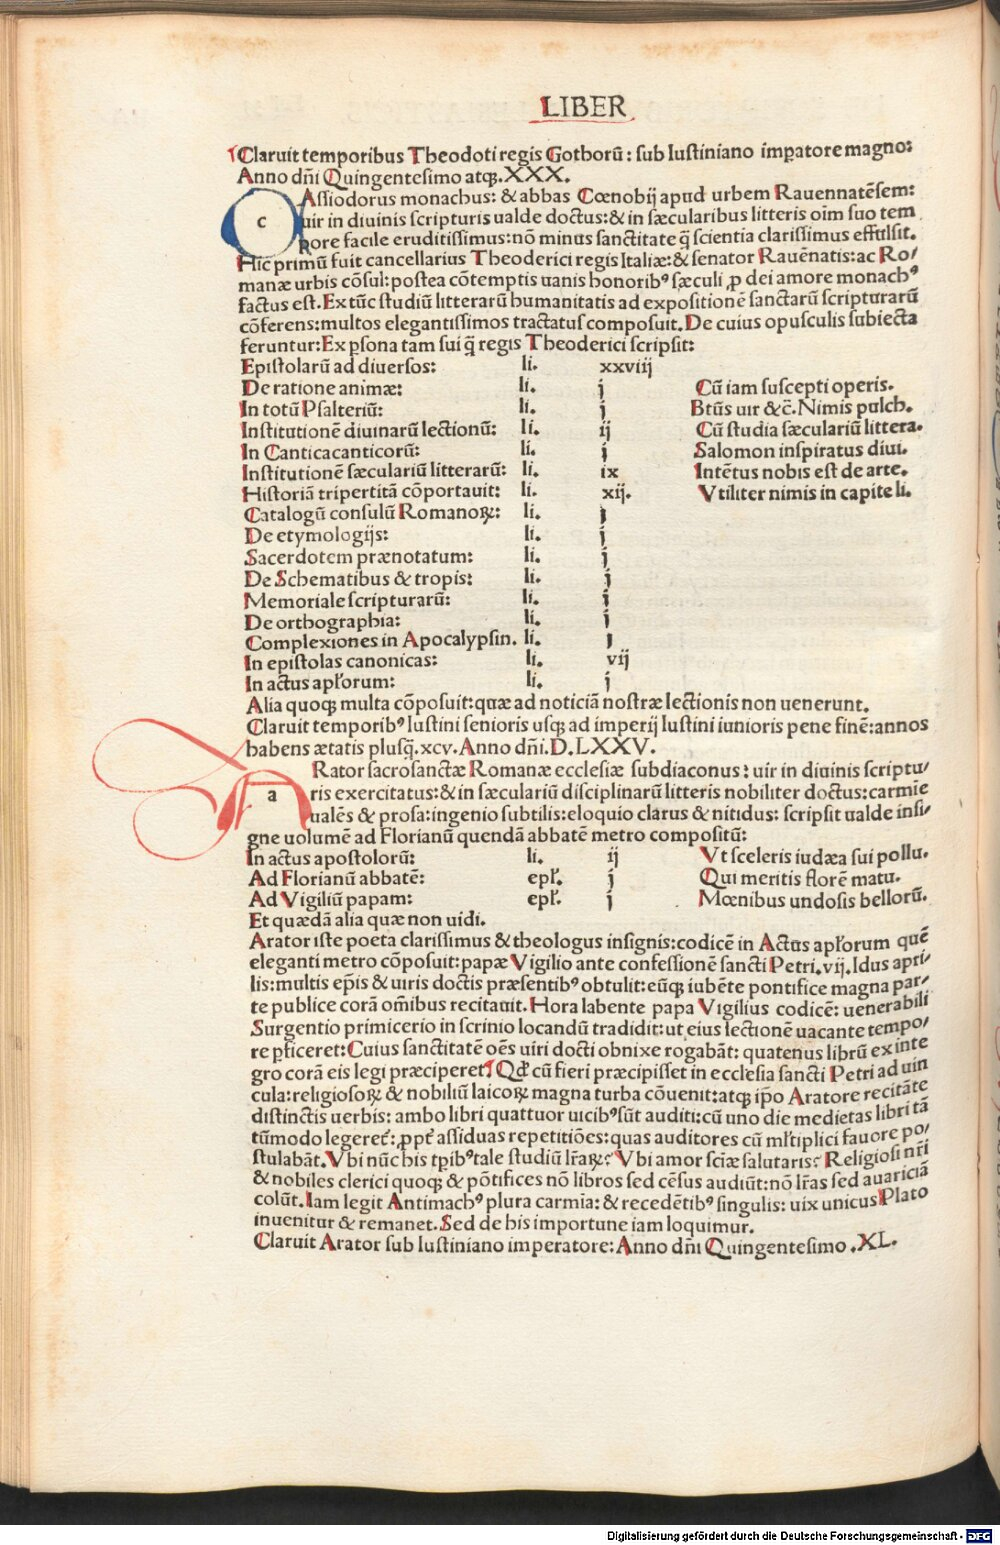 LIBER
Claruit temporibus Theodoti regis Gothorū: sub Iustiniano imꝑatore magno:
Anno dñi Quingentesimo atqꝫ.XXX.
c Assiodorus monachus: & abbas Cœnobij apud urbem Rauennatēsem:
uir in diuinis scripturis ualde doctus:& in sæcularibus litteris oīm suo tem
pore facile eruditissimus:nō minus sanctitate q̄ scientia clarissimus effulsit.
Hic primū fuit cancellarius Theoderici regis Italiæ:& senator Rauēnatis:ac Ro/
manæ urbis cōsul:postea cōtemptis uanis honoribꝰ sæculi ꝓ dei amore monachꝰ
factus est.Ex tūc studiū litterarū humanitatis ad expositionē sanctarū scripturarū
cōferens:multos elegantissimos tractatus composuit.De cuius opusculis subiecta
feruntur:Ex ꝑsona tam sui q̄ regis Theoderici scripsit:
Epistolarū ad diuersos: li. xxviij
De ratione animæ: li. j Cū iam suscepti operis.
In totū Psalteriū: li. j Btūs uir &c̄.Nimis pulch.
Institutionē diuinarū lectionū: li. ij Cū studia sæculariū littera.
In Cantica canticorū: li. j Salomon inspiratus diui.
Institutionē sæculariū litterarū: li. ix Intētus nobis est de arte.
Historiā tripertitā cōportauit: li. xij. Vtiliter nimis in capite li.
Catalogū consulū Romanoꝝ: li. j
De etymologijs: li. j
Sacerdotem prænotatum: li. j
De Schematibus & tropis: li. j
Memoriale scripturarū: li. j
De orthographia: li. j
Complexiones in Apocalypsin. li. j
In epistolas canonicas: li. vij
In actus apl'orum: li. j
Alia quoqꝫ multa cōposuit:quæ ad noticiā nostræ lectionis non uenerunt.
Claruit temporibꝰ Iustini senioris usqꝫ ad imperij Iustini iunioris pene finē:annos
habens ætatis plusq̄.xcv.Anno dñi.D.LXXV.
a Rator sacrosanctæ Romanæ ecclesiæ subdiaconus: uir in diuinis scriptu/
ris exercitatus:& in sæculariū disciplinarū litteris nobiliter doctus:carmīe
ualēs & prosa:ingenio subtilis:eloquio clarus & nitidus: scripsit ualde insi/
gne uolumē ad Florianū quendā abbatē metro compositū:
In actus apostolorū: li. ij Vt sceleris iudæa sui pollu.
Ad Florianū abbatē: epl'. j Qui meritis florē matu.
Ad Vigiliū papam: epl'. j Mœnibus undosis bellorū.
Et quædā alia quæ non uidi.
Arator iste poeta clarissimus & theologus insignis:codicē in Actus apl'orum quē
eleganti metro cōposuit:papæ Vigilio ante confessionē sancti Petri.vij.Idus apri/
lis:multis ep̄is & uiris doctis præsentibꝰ obtulit:eūqꝫ iubēte pontifice magna par/
te publice corā om̄ibus recitauit.Hora labente papa Vigilius codicē: uenerabili
Surgentio primicerio in scrinio locandū tradidit:ut eius lectionē uacante tempo/
re ꝑficeret:Cuius sanctitatē oēs uiri docti obnixe rogabāt: quatenus librū ex inte
gro corā eis legi præciperet Qd' cū fieri præcipisset in ecclesia sancti Petri ad uin
cula:religiosoꝝ & nobiliū laicoꝝ magna turba cōuenit:atqꝫ ip̄o Aratore recitāte
distinctis uerbis: ambo libri quattuor uicibꝰ sūt auditi:cū uno die medietas libri tā
tūmodo legeret': ꝓpt' assiduas repetitiōes:quas auditores cū ml'tiplici fauore po/
stulabāt.Vbi nūc his tp̄ibꝰ tale studiū lr̄aꝝ? Vbi amor sciæ salutaris? Religiosi nr̄i
& nobiles clerici quoqꝫ & pōtifices nō libros sed cēsus audiūt:nō lr̄as sed auariciā
colūt.Iam legit Antimachꝰ plura carmīa:& recedētibꝰ singulis: uix unicus Plato
inuenitur & remanet.Sed de his importune iam loquimur.
Claruit Arator sub Iustiniano imperatore:Anno dñi Quingentesimo .XL.
Digitalisierung gefördert durch die Deutsche Forschungsgemeinschaft - DFG